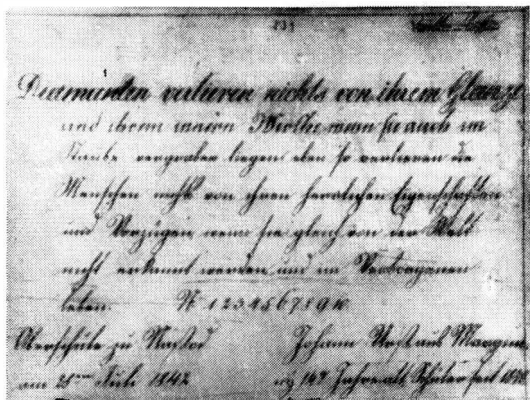 231
Diamanten verlieren nichts von ihrem Glanze
und ihrem innern Werthe wenn sie auch im
Staube vergraben liegen eben so verlieren die
Menschen nichts von ihren herrlichen Eigenschaften
und Vorzügen wenn sie gleich von der Welt
nicht erkannt werden und im Verborgenen
leben. N 1 2 3 4 5 6 7 8 9 10
Oberschule zu Johann aus
am 28ten Juli 1842 Jahre alt Schüler seit